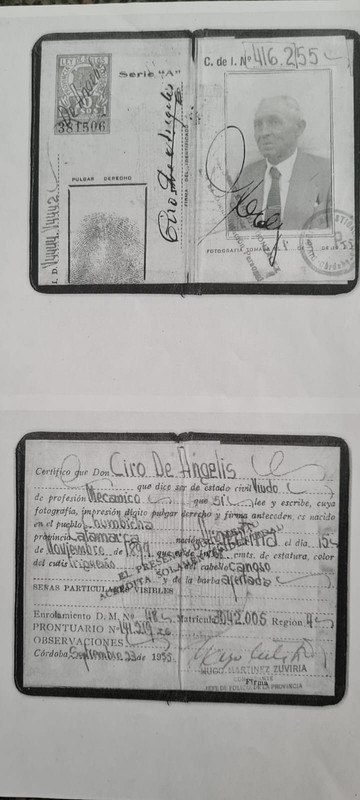 LEY DE SELLOS
381506
Serie "A"
PULGAR DERECHO
Ciro De Angelis
FIRMA DEL IDENTIFICADO
I. D. V4444 V4442
C. de I. Nº 416.255
FOTOGRAFIA TOMADA EL
Certifico que Don Ciro De Angelis
que dice ser de estado civil Viudo
de profesión Mecanico que si lee y escribe, cuya
fotografía, impresión dígito pulgar derecho y firma anteceden, es nacido
en el pueblo nación Argentina
provincia Catamarca el día 15
de Noviembre de 1899 que mide cmts. de estatura, color
del cutis trigueño cabello Canoso
y de la barba afeitada
SEÑAS PARTICULARES VISIBLES
EL PRESENTE
ACREDITA SOLAMENTE
Enrolamiento D. M. Nº 48 Matricula Región 4
PRONTUARIO Nº 141.219
OBSERVACIONES
Córdoba, Septiembre 23 de 1955
HUGO MARTINEZ ZUVIRIA
COMANDANTE
JEFE DE POLICIA DE LA PROVINCIA
Firma